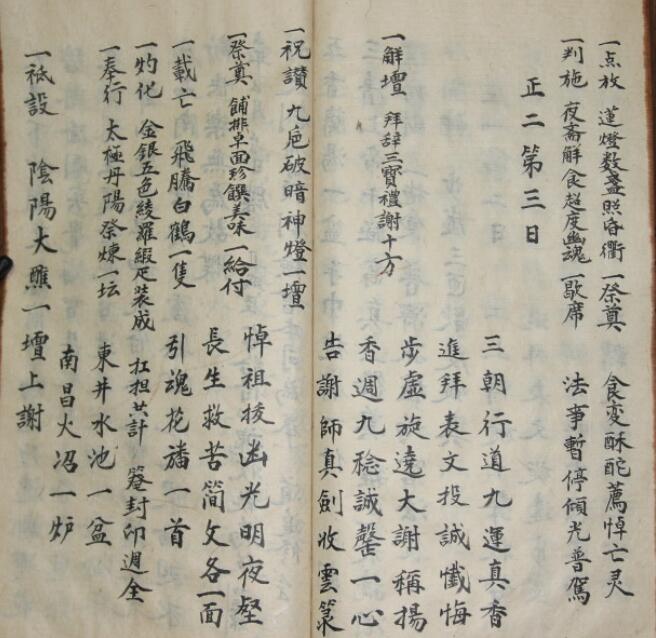 一点放 蓮燈数盞照昏衢 一祭奠 食変酥酡薦悼亡灵
一判施 夜斋觧食超度幽魂 一歇席 法亊暫停傾光普駕
正二第三日
三朝行道九運真香
進拜表文投誠懺悔
步虚旋遶大謝稱揚
一觧壇 拜辞三寳禮謝十方 香週九稔誠罄一心
告謝師真劍收雲篆
一祝讃 九巵破暗神燈一壇
一祭奠 鋪排卓面珍饌美味 一給付 悼祖拔幽光明夜壑
長生救苦简文各一面
一載亡 飛騰白鶴一隻 引魂花旛一首
一灼化 金銀五色綾羅緞疋装成 扛担共計 篓封印週全
一奉行 太極丹陽祭煉一坛 東井水池一盆
南昌火沼一炉
一祗設 隂陽大醮一壇上謝